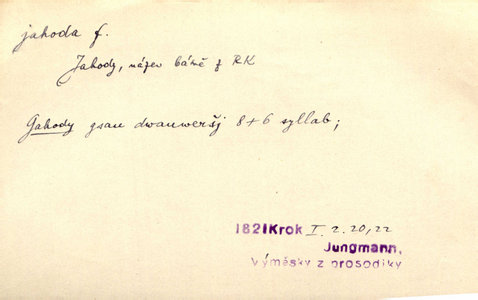 jahoda f.
Jahody, název básně z RK
Gahody gsau dwauweršj 8+6 syllab;
1821 Krok I 2.20,22
Jungmann,
Výměsky z prosodiky